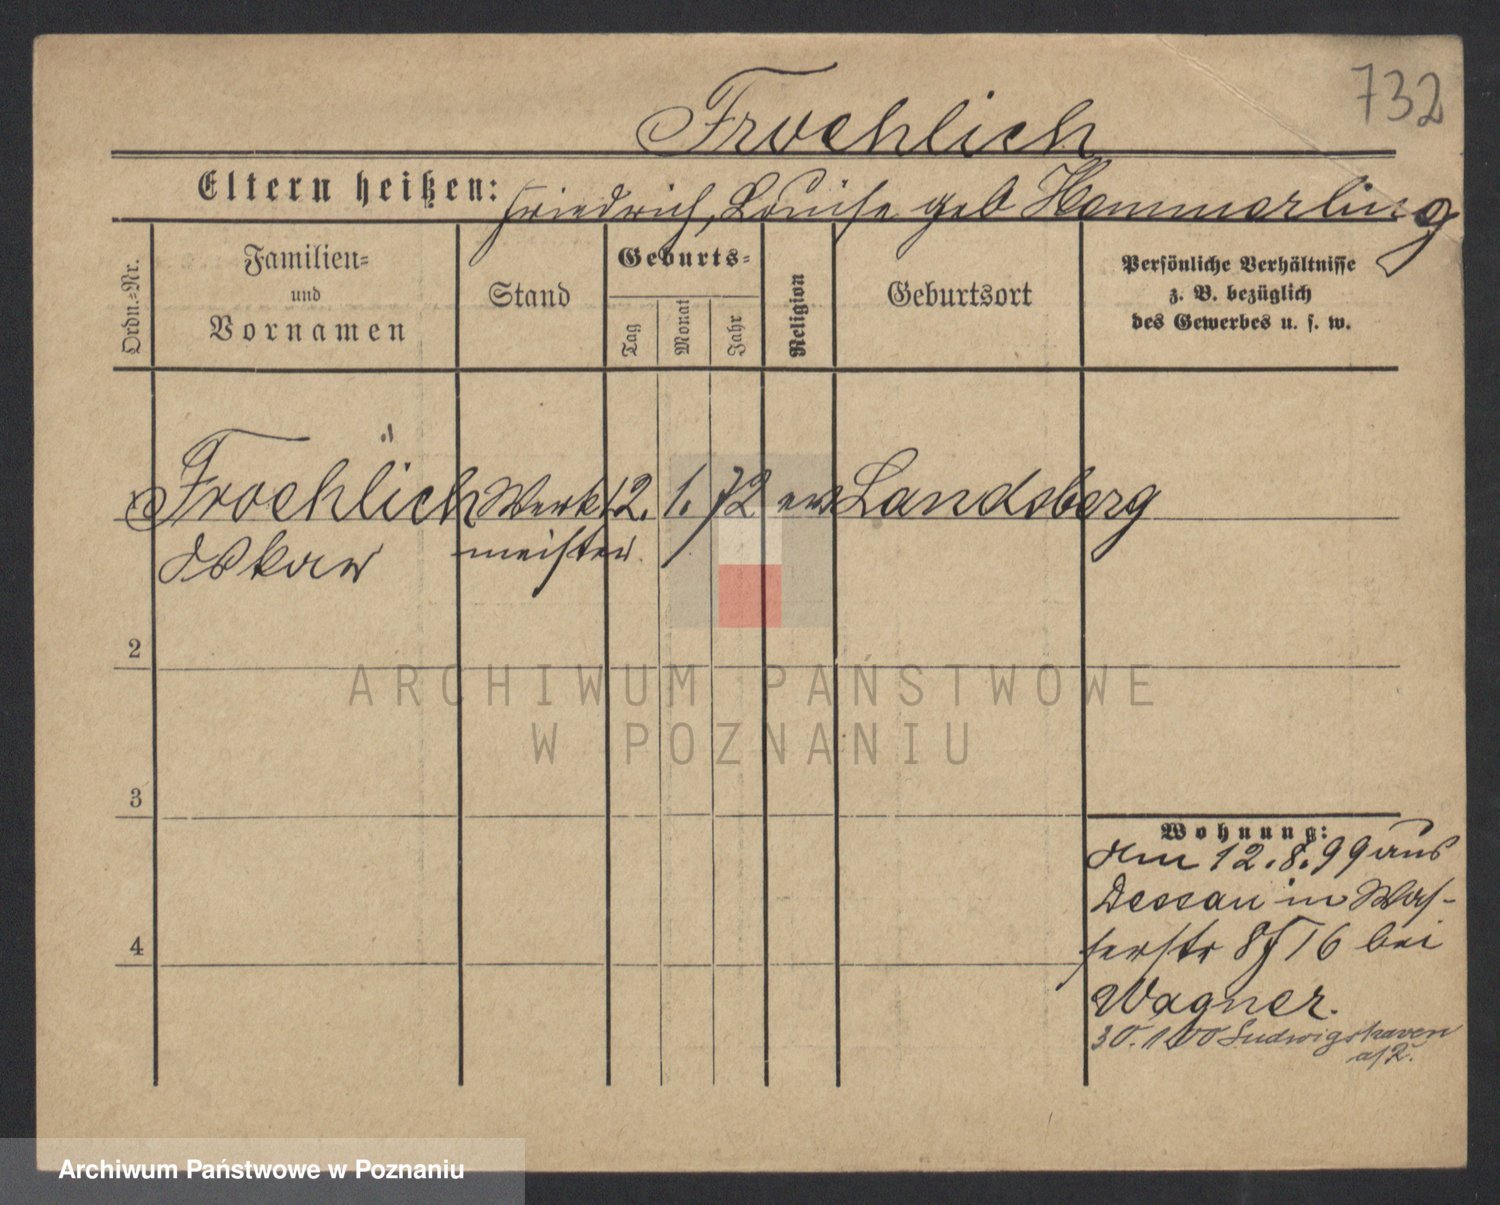 732
Froehlich
Eltern heißen: Friedrich, Louise geb Hammerling
Ordn.=Nr.
Familien=
und
Vornamen
Stand
Geburts=
Tag
Monat
Jahr
Religion
Geburtsort
Persönliche Verhältnisse
z. B. bezüglich
des Gewerbes u. s. w.
Froehlich Werk 12. 1. 72 ev Landsberg
Oskar meister.
2
3
4
Wohnung:
Am 12.8.99 aus
Dessau in Was-
serstr 8/ 16 bei
Wagner.
Ludwigshaven
a/R.
ARCHIWUM PAŃSTWOWE
W POZNANIU
Archiwum Państwowe w Poznaniu